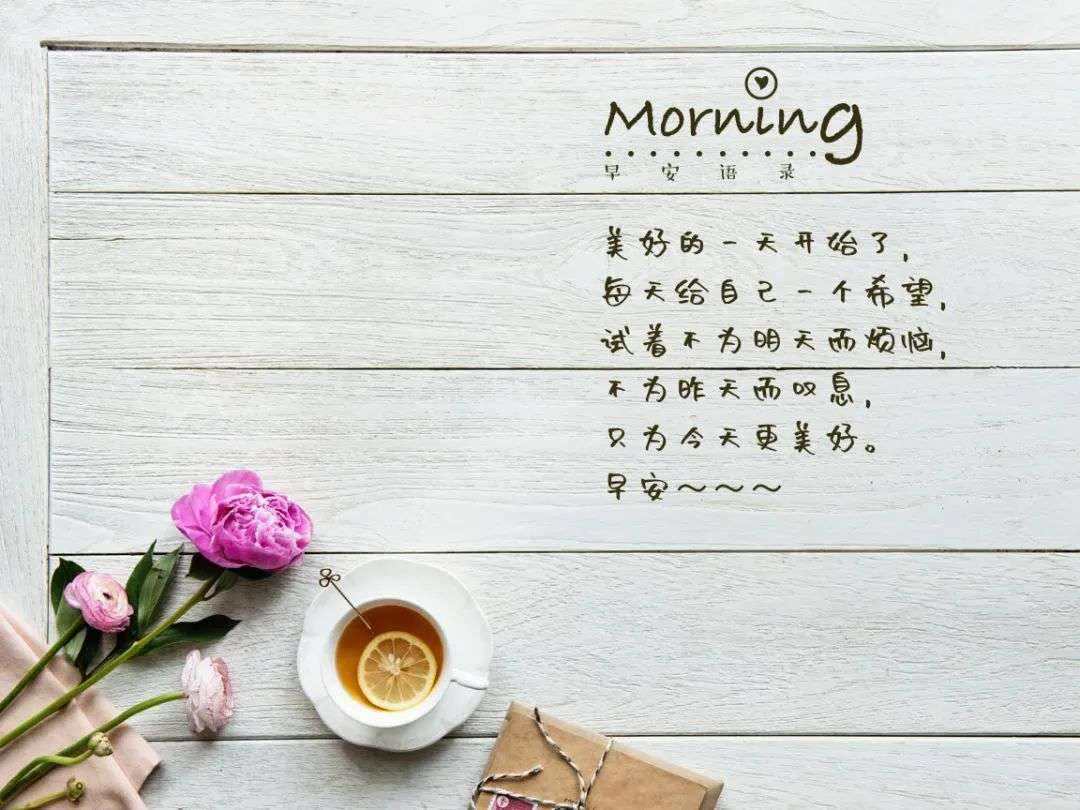 Morning
早安语录
美好的一天开始了,
每天给自己一个希望,
试着不为明天而烦恼,
不为昨天而叹息,
只为今天更美好。
早安～～～